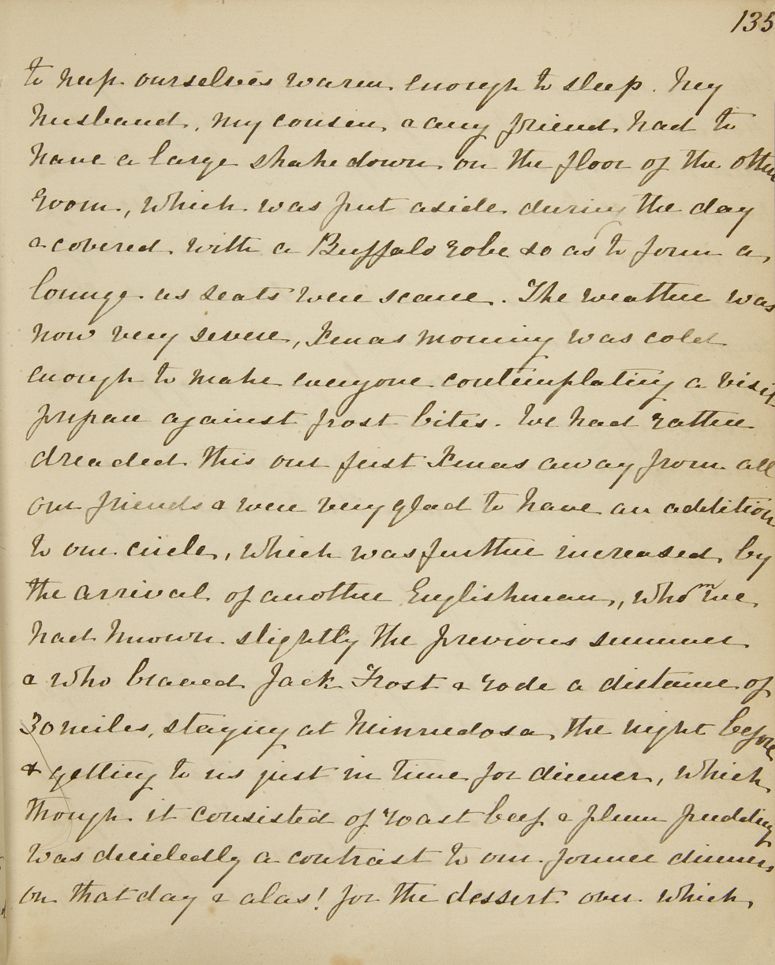 135
to keep ourselves warm enough to sleep. My
husband, my cousin, & any friend had to
have a large shakedown on the floor of the other
room, which was put aside during the day
& covered with a Buffalo robe so as to form a
lounge as seats were scarce. The weather was
now very severe, Xmas morning was cold
enough to make everyone contemplating a visit
prepare against frost bites. We had rather
dreaded this our first Xmas away from all
our friends & were very glad to have an addition
to our circle, which was further increased by
the arrival of another Englishman, whom we
had known slightly the previous summer
& who braved Jack Frost & rode a distance of
30 miles, staying at Minnedosa the night before
& getting to us just in time for dinner, which
though it consisted of roast beef & plum pudding
was decidedly a contrast to our former dinners
on that day & alas! for the dessert over which